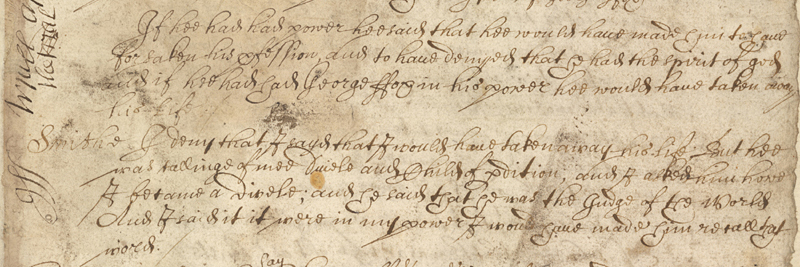 If hee had had power hee said that hee would have made him to have
forsaken his pfession, and to have denyed that he had the spirit of god
and if hee had had George ffox in his power hee would have taken away
his life
Smithe I deny that I sayd that I would have taken away his life; But hee
was callinge of mee Divele and Child of pdition; and I asked him howe
I became a divele; and he said that he was the Judge of the World
And I said it it were in my power I would have made him recall that
word.
say